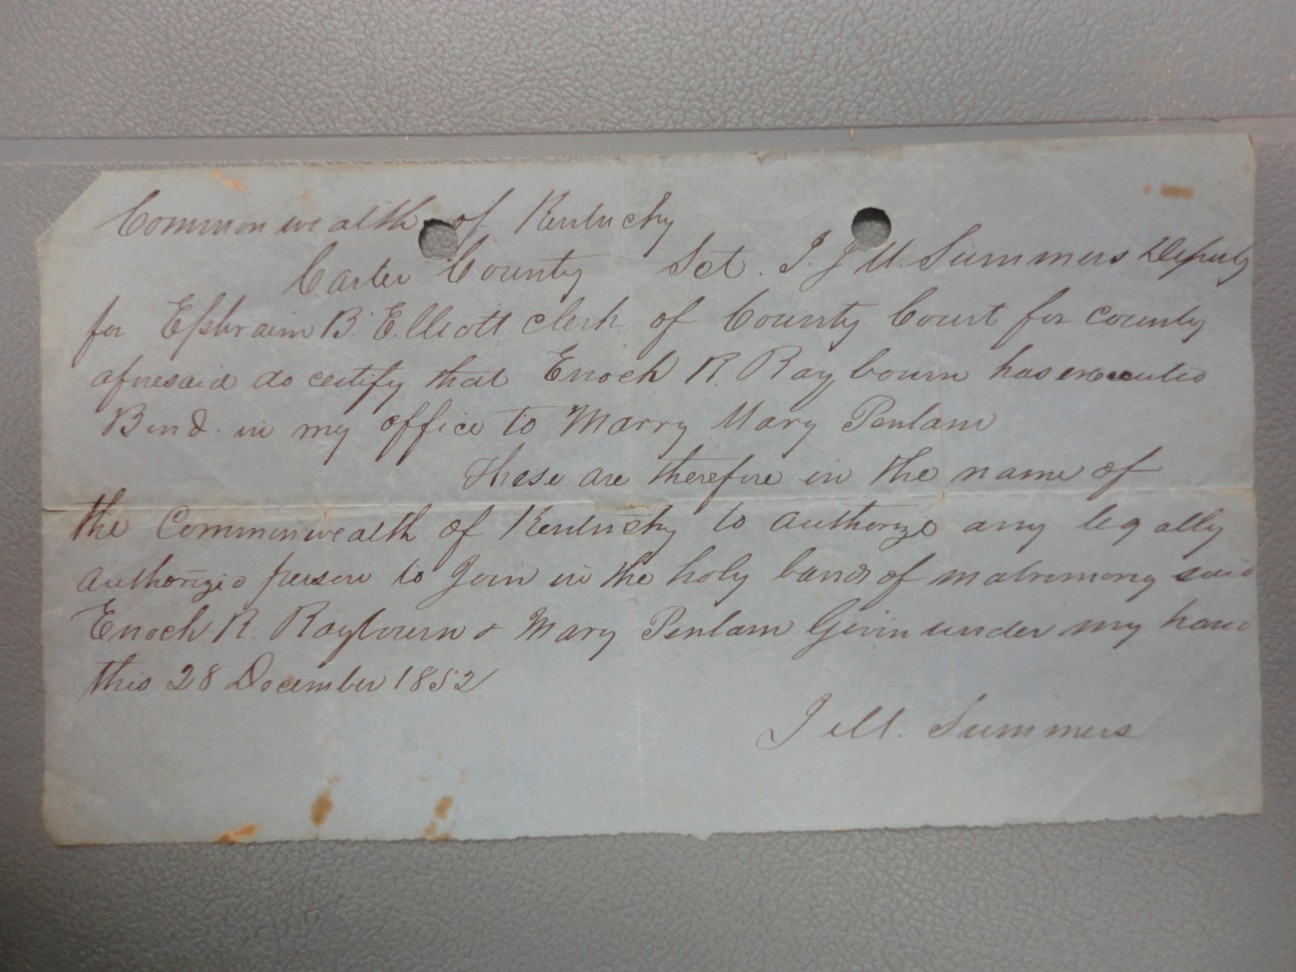 Commonwealth of Kentucky
Carter County Sct. I. J M. Summers Deputy
for Ephraim B. Elliott clerk of County Court for county
aforesaid do certify that Enoch R. Raybourn has executed
Bond in my office to Marry Mary Penlam
These are therefore in the name of
the Commonwealth of Kentucky to authorize any legally
authorized person to Join in the holy bands of matrimony said
Enoch R. Raybourn & Mary Penlam Given under my hand
this 28 December 1852
J M. Summers